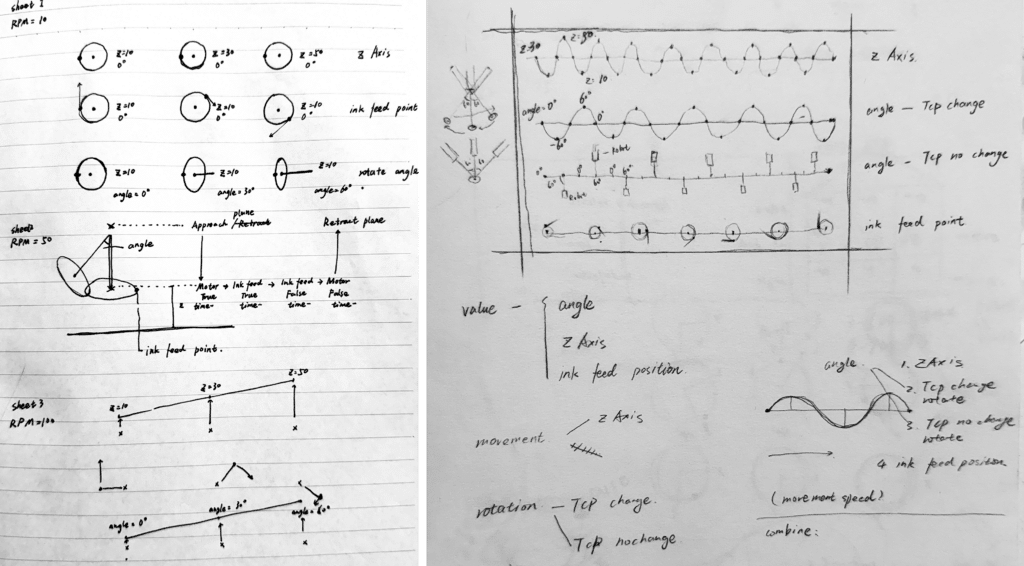 sheet 1
RPM = 10
Z=10
0°
Z=30
0°
Z=50
0°
Z Axis
Z=10
0°
Z=10
0°
Z=10
0°
ink feed point
Z=10
angle = 0°
Z=10
angle = 30°
Z=10
angle = 60°
rotate angle
sheet2
RPM = 50
angle
plane
Approach/Retract
Retract plane
Z
Motor → Ink feed → Ink feed → Motor
True True False False
time- time- time- time-
ink feed point.
sheet 3
RPM=100
Z=10
Z=30
Z=50
angle = 0°
angle = 30°
angle = 60°
Z=30
Z=50
Z=10
Z Axis
angle=0°
60°
0°
-60°
angle - Tcp change
Robot
0°
60°
0°
60°
Robot
angle - Tcp no change
ink feed point
value -
angle
Z Axis
ink feed position.
movement
Z Axis
rotation - Tcp change.
Tcp nochange.
angle
1. Z Axis
2. Tcp change
rotate
3. Tcp no change
rotate
4 ink feed position
(movement speed)
combine: